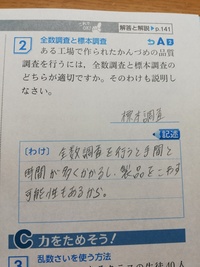 解答と解説▶p.141
2 全数調査と標本調査
ある工場で作られたかんづめの品質
調査を行うには，全数調査と標本調査の
どちらが適切ですか。そのわけも説明し
なさい。
標本調査
記述
[わけ] 全数調査を行うと手間と
時間が多くかかるし、製品をこわす
可能性もあるから。
C 力をためそう！
3 乱数さいを使う方法